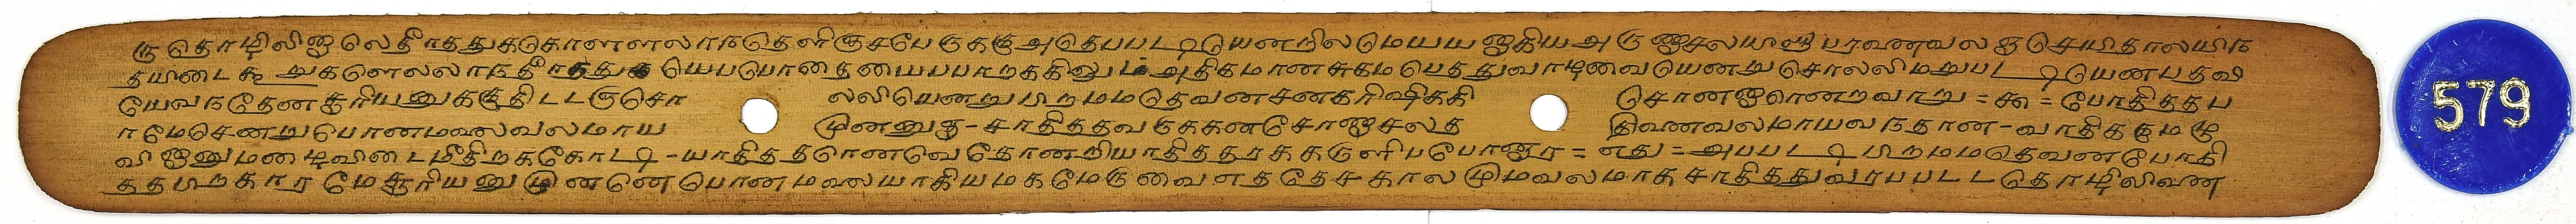 ரு தொழிலினாலெதீாததுகக்கொளளலாநதெளிஞசபேருககுஅதெபபடடியெனறிலமெயயனாகியஅருணாசலயீஸ்பரவணவலஞசெயிதாலயிந
தயிடைகூறுகளெலலாநதீாதது யெபபொதையைபபாறககினும அதிகமானசுகமபெததுவாழவையெனறுசொலலிமறுபடடியெணபதவி
யேவநதேணசூரியனுககுதிடடஞசொ லலியெனறுபிறமமதெவனசனகரிஷிககி சொனனாரெனறவாறு=கூ=போதிததப
ாமேசெணறுபொனமலைவலமாய முனனுஞ-சாதிததவருககனசோணாசலத திவணவலமாயவநதான-வாதிதகுமகு
விஞனுமணடிவிடைமீதிறககோடடி-யாதிததரெனவேதோணறியாதிததரககருளிபபோனார=எது=அபபடடிபிறமமதெவணபோதி
ததபிறகாரமேசூரியனுமுனனெபொனமலையாகியமகமேருவைஎததேசகாலமுமவலமாகசாதிததுவரபபடடதொழிலிவண
579